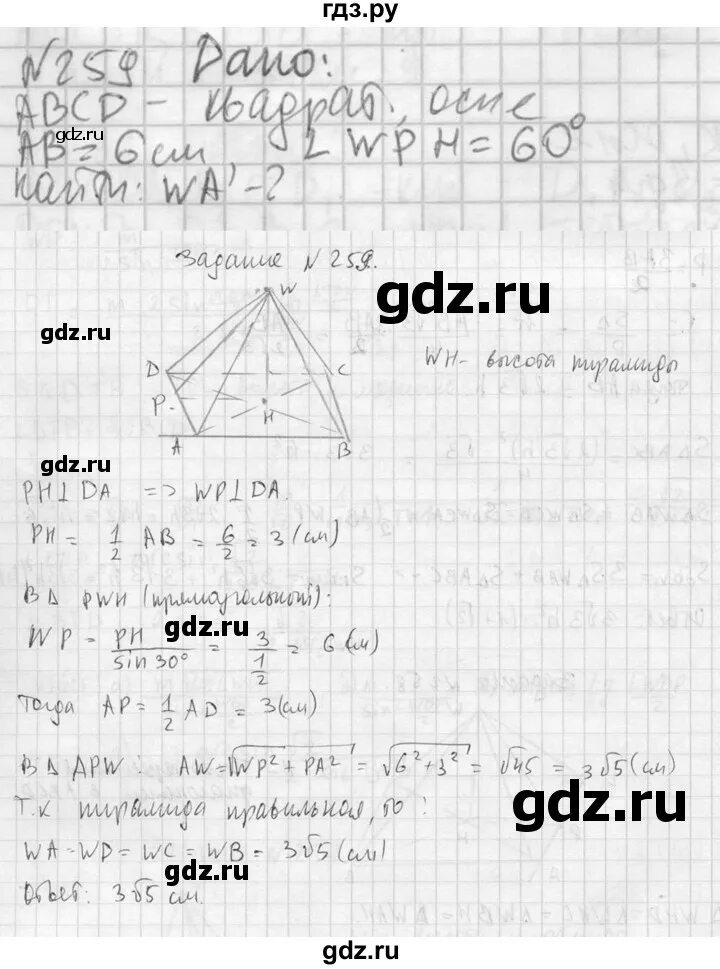 гдз.ру
№259 Дано:
ABCD - квадрат, осне
AB = 6 см ∠ WPH = 60°
найти: WA - ?
Задание №259.
gdz.ru
gdz.ru
W
D
C
P
H
A
B
WH - высота пирамиды
gdz.ru
PH ⊥ DA => WP ⊥ DA.
gdz.ru
PH = 1/2 AB = 6/2 = 3 (см)
В Δ PWH (прямоугольный):
gdz.ru
WP = PH/sin 30° = 3/(1/2) = 6 (см)
Тогда AP = 1/2 AD = 3 (см)
В Δ APW AW = √(WP² + PA²) = √(6² + 3²) = √45 = 3√5 (см)
gdz.ru
Т.к пирамида правильная, то:
WA = WD = WC = WB = 3√5 (см)
gdz.ru
Ответ: 3√5 см.
gdz.ru